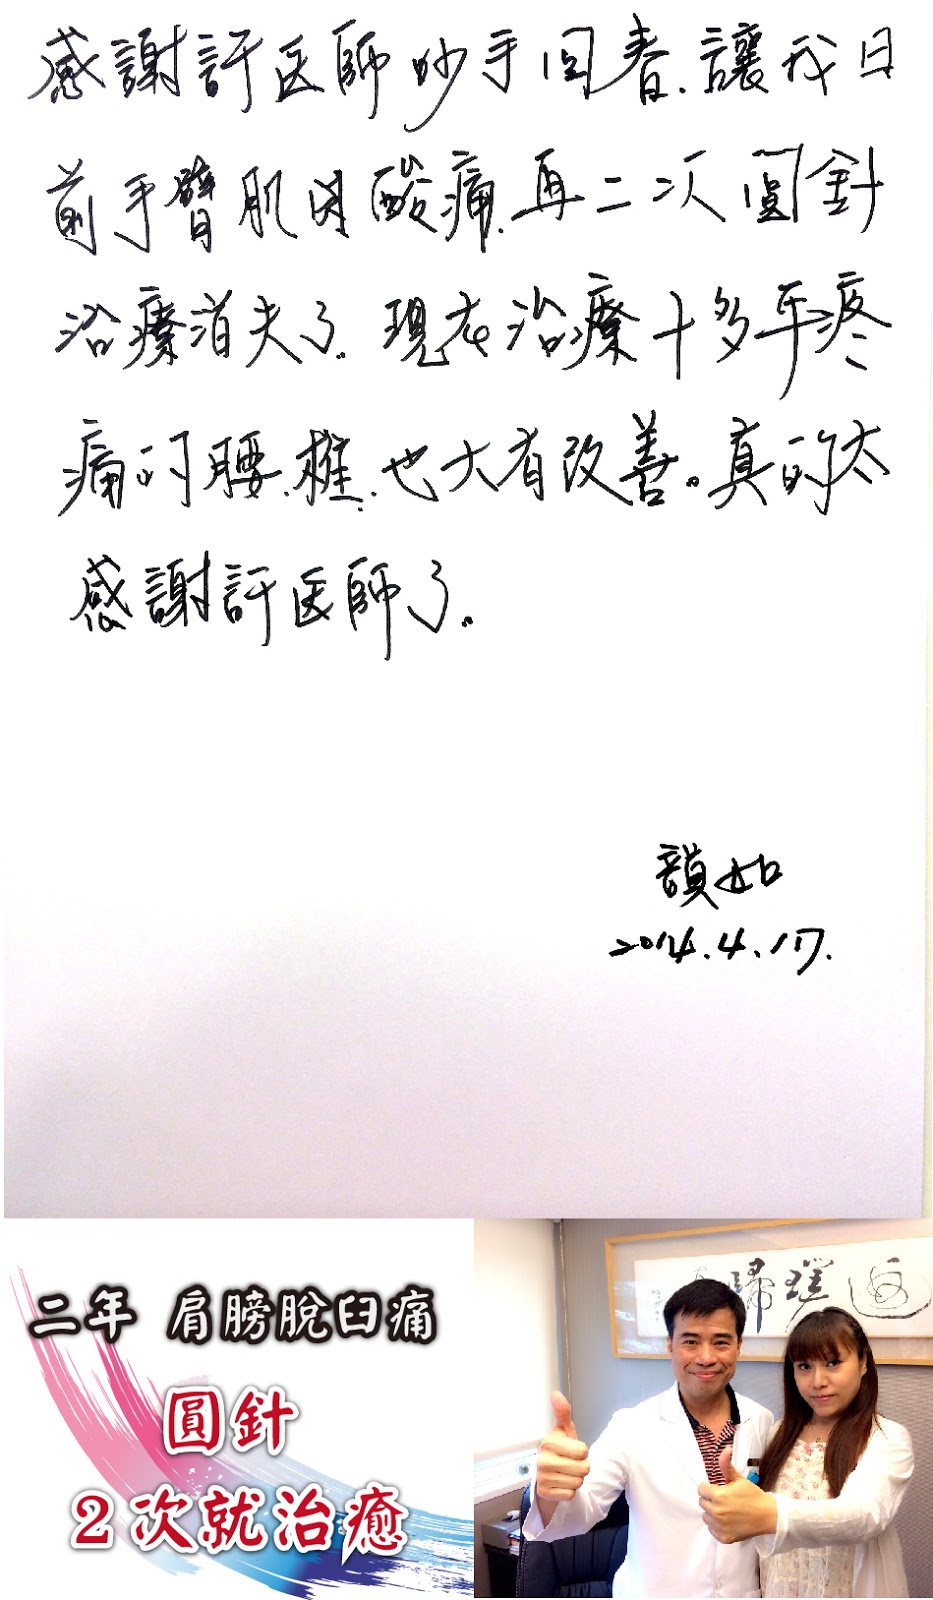 感謝許医師妙手回春.讓我日
前手臂肌肉酸痛.再二次圓針
治療消失了.現在治療十多年疼
痛的腰.椎.也大有改善。真的太
感謝許医師了。
韻如
2014.4.17.
二年 肩膀脫臼痛
圓針
2次就治癒
返璞歸